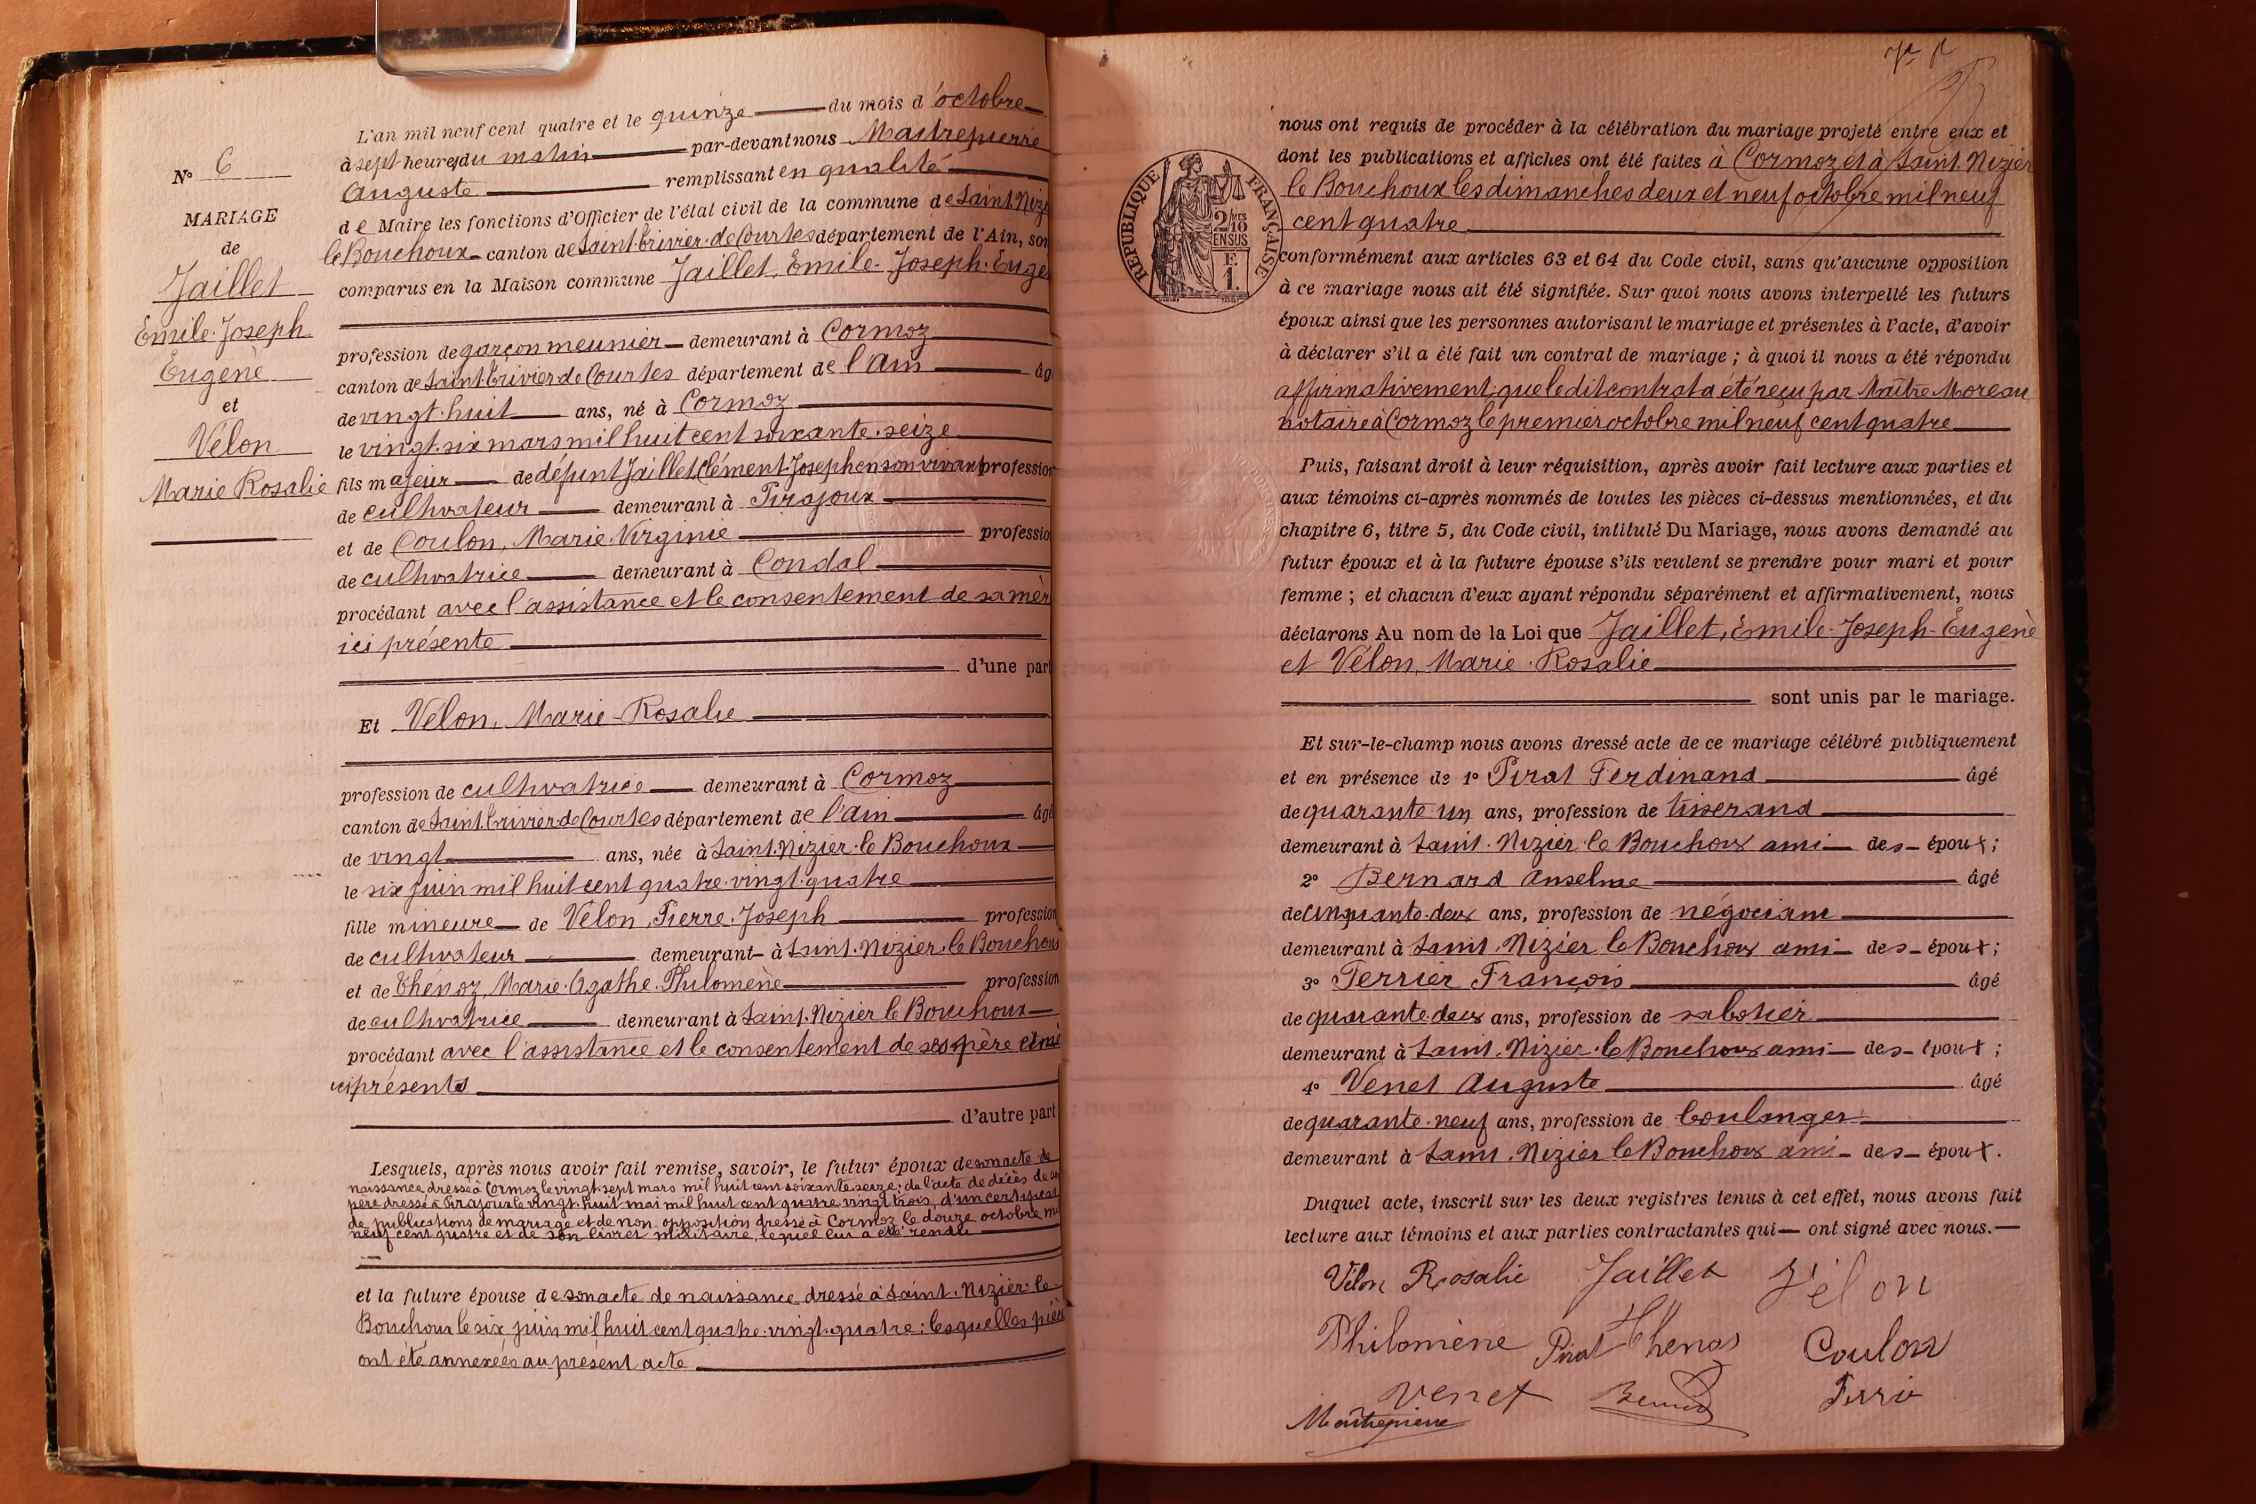 N° 6
MARIAGE
de
Jaillet
Emile-Joseph
Eugène
et
Vélon
Marie Rosalie
L'an mil neuf cent quatre et le quinze du mois d'octobre
à sept heures du matin par-devant nous Maitrepierre
Auguste remplissant en qualité
de Maire les fonctions d'Officier de l'état civil de la commune de Saint-Nizi
le Bouchoux canton de Saint-Trivier-de-Courtes département de l'Ain, son
comparus en la Maison commune Jaillet, Emile-Joseph-Eugè
profession de garçon meunier demeurant à Cormoz
canton de Saint-Trivier-de-Courtes département de l'Ain âg
de vingt-huit ans, né à Cormoz
le vingt-six mars mil huit cent soixante-seize
fils majeur de défunt Jaillet Clément-Joseph en son vivant profession
de cultivateur demeurant à Pirajoux
et de Coulon, Marie-Virginie professio
de cultivatrice demeurant à Condal
procédant avec l'assistance et le consentement de sa mèr
ici présente
d'une part
Et Vélon, Marie-Rosalie
profession de cultivatrice demeurant à Cormoz
canton de Saint-Trivier-de-Courtes département de l'Ain âgé
de vingt ans, née à Saint-Nizier-le Bouchoux
le six juin mil huit cent quatre-vingt-quatre
fille mineure de Vélon, Pierre-Joseph profession
de cultivateur demeurant à Saint-Nizier-le Bouchoux
et de Thénoz, Marie-Agathe-Philomène profession
de cultivatrice demeurant à Saint-Nizier le Bouchoux
procédant avec l'assistance et le consentement de ses père et mè
ici présents
d'autre part
Lesquels, après nous avoir fait remise, savoir, le futur époux de son acte de
naissance dressé à Cormoz le vingt-sept mars mil huit cent soixante-seize; de l'acte de décès de son
père dressé à Pirajoux le vingt-huit mai mil huit cent quatre vingt trois, d'un certificat
de publications de mariage et de non-opposition dressé à Cormoz le douze octobre mil
neuf cent quatre et de son livret militaire, lequel lui a été rendu
et la future épouse de son acte de naissance dressé à Saint-Nizier-le-
Bouchoux le six juin mil huit cent quatre-vingt-quatre; lesquelles pièc
ont été annexées au présent acte
RÉPUBLIQUE FRANÇAISE
2/10
EN SUS
F.
1.
nous ont requis de procéder à la célébration du mariage projeté entre eux et
dont les publications et affiches ont été faites à Cormoz et à Saint-Nizier
le Bouchoux les dimanches deux et neuf octobre mil neuf
cent quatre
conformément aux articles 63 et 64 du Code civil, sans qu'aucune opposition
à ce mariage nous ait été signifiée. Sur quoi nous avons interpellé les futurs
époux ainsi que les personnes autorisant le mariage et présentes à l'acte, d'avoir
à déclarer s'il a été fait un contrat de mariage ; à quoi il nous a été répondu
affirmativement, que ledit contrat a été reçu par Maître Moreau
notaire à Cormoz le premier octobre mil neuf cent quatre
Puis, faisant droit à leur réquisition, après avoir fait lecture aux parties et
aux témoins ci-après nommés de toutes les pièces ci-dessus mentionnées, et du
chapitre 6, titre 5, du Code civil, intitulé Du Mariage, nous avons demandé au
futur époux et à la future épouse s'ils veulent se prendre pour mari et pour
femme ; et chacun d'eux ayant répondu séparément et affirmativement, nous
déclarons Au nom de la Loi que Jaillet, Emile-Joseph-Eugène
et Vélon, Marie-Rosalie
sont unis par le mariage.
Et sur-le-champ nous avons dressé acte de ce mariage célébré publiquement
et en présence de 1° Pirat Ferdinand âgé
de quarante un ans, profession de tisserand
demeurant à Saint-Nizier-le Bouchoux ami des époux ;
2° Bernard Anselme âgé
de cinquante-deux ans, profession de négociant
demeurant à Saint-Nizier le Bouchoux ami des époux ;
3° Perrier François âgé
de quarante-deux ans, profession de sabotier
demeurant à Saint-Nizier-le Bouchoux ami des époux ;
4° Venet Auguste âgé
de quarante-neuf ans, profession de boulanger
demeurant à Saint-Nizier le Bouchoux ami des époux.
Duquel acte, inscrit sur les deux registres tenus à cet effet, nous avons fait
lecture aux témoins et aux parties contractantes qui ont signé avec nous.
Vélon Rosalie Jaillet Vélon
Philomène Pirat Thenoz Coulon
Venet Bernard Perrier
Maitrepierre